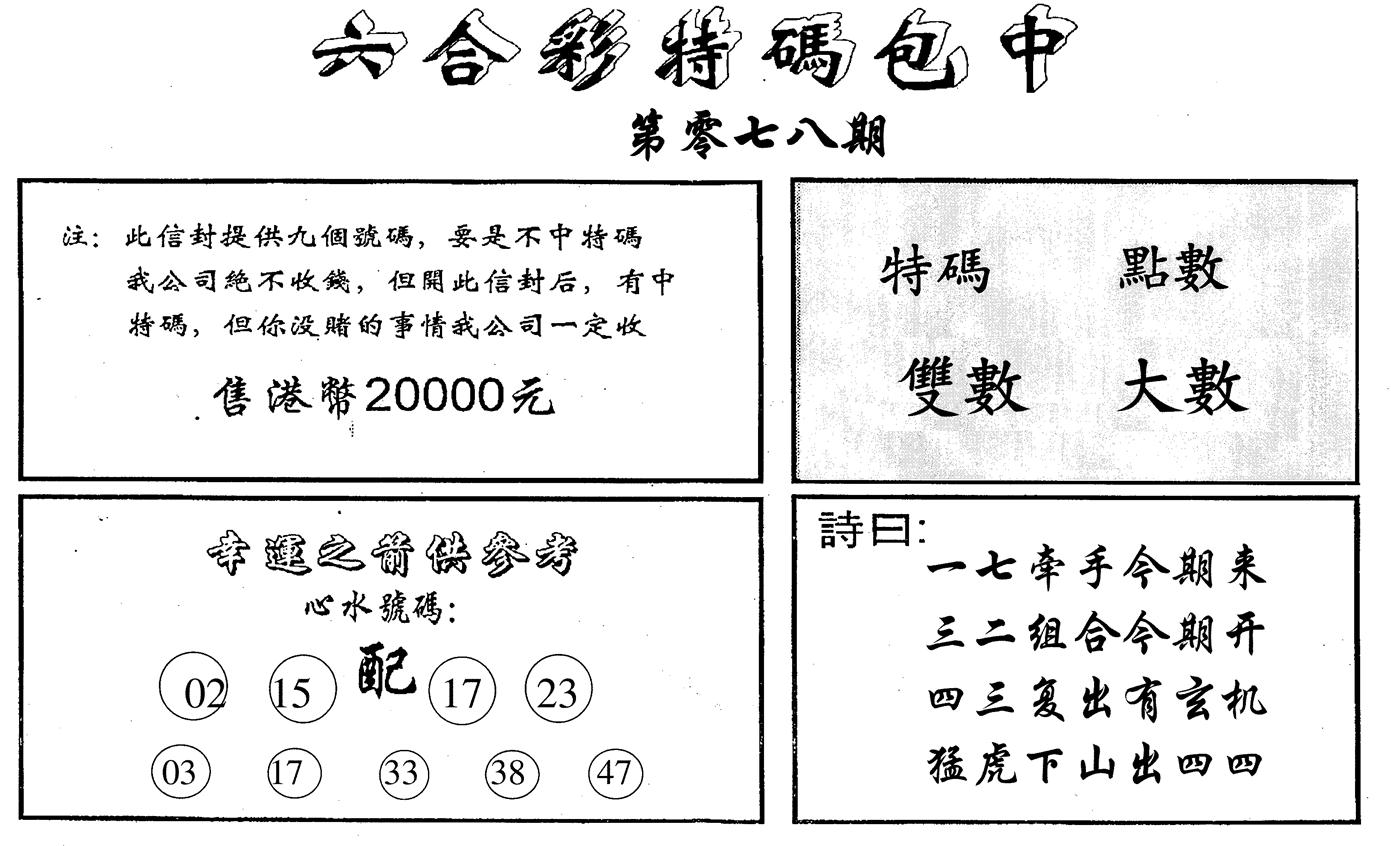 六合彩特碼包中
第零七八期
注：此信封提供九個號碼，要是不中特碼
我公司絶不收錢，但開此信封后，有中
特碼，但你没賭的事情我公司一定收
售港幣20000元
特碼 點數
雙數 大數
幸運之箭供參考
心水號碼：
02 15 配 17 23
03 17 33 38 47
詩曰：
一七牵手今期来
三二组合今期开
四三复出有玄机
猛虎下山出四四